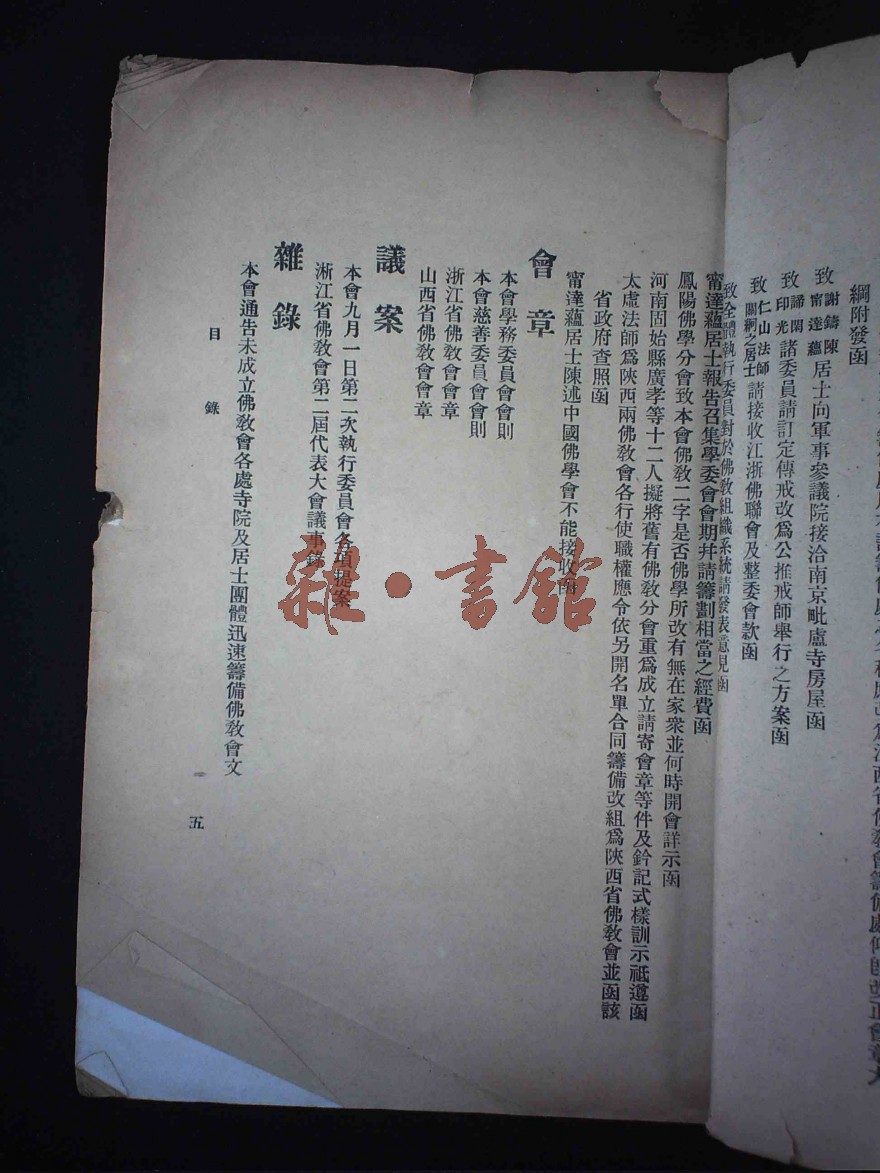 綱附發函
致謝鑄陳甯達蘊居士向軍事參議院接洽南京毗盧寺房屋函
致諦閑印光諸委員請訂定傳戒改爲公推戒師舉行之方案函
致仁山法師關絅之居士請接收江浙佛聯會及整委會款函
致全體執行委員對於佛教組織系統請發表意見函
甯達蘊居士報告召集學委會會期幷請籌劃相當之經費函
鳳陽佛學分會致本會佛敎二字是否佛學所改有無在家衆並何時開會詳示函
河南固始縣廣孝等十二人擬將舊有佛敎分會重爲成立請寄會章等件及鈐記式樣訓示祗遵函
太虛法師爲陝西兩佛敎會各行使職權應令依另開名單合同籌備改組爲陝西省佛敎會並函該
省政府查照函
甯達蘊居士陳述中國佛學會不能接收函
會章
本會學務委員會會則
本會慈善委員會會則
浙江省佛敎會會章
山西省佛敎會會章
議案
本會九月一日第二次執行委員會各項提案
浙江省佛敎會第二屆代表大會議事錄
雜錄
本會通告未成立佛敎會各處寺院及居士團體迅速籌備佛敎會文
目錄
五
雜·書館